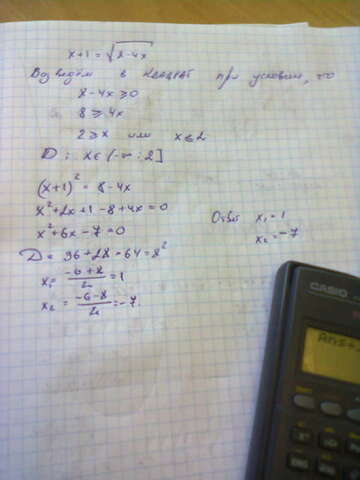 x+1 = √8-4x
Возведём в квадрат при условии, что
8-4x ≥ 0
8 ≥ 4x
2 ≥ x или x ≤ 2
D : x ∈ (-∞ ; 2]
(x+1)² = 8-4x
x²+2x+1-8+4x=0
x²+6x-7=0
D = 36+28=64=8²
x₁ = (-6+8)/2 = 1
x₂ = (-6-8)/2 = -7
Ответ x₁ = 1
x₂ = -7
CASIO
Ans